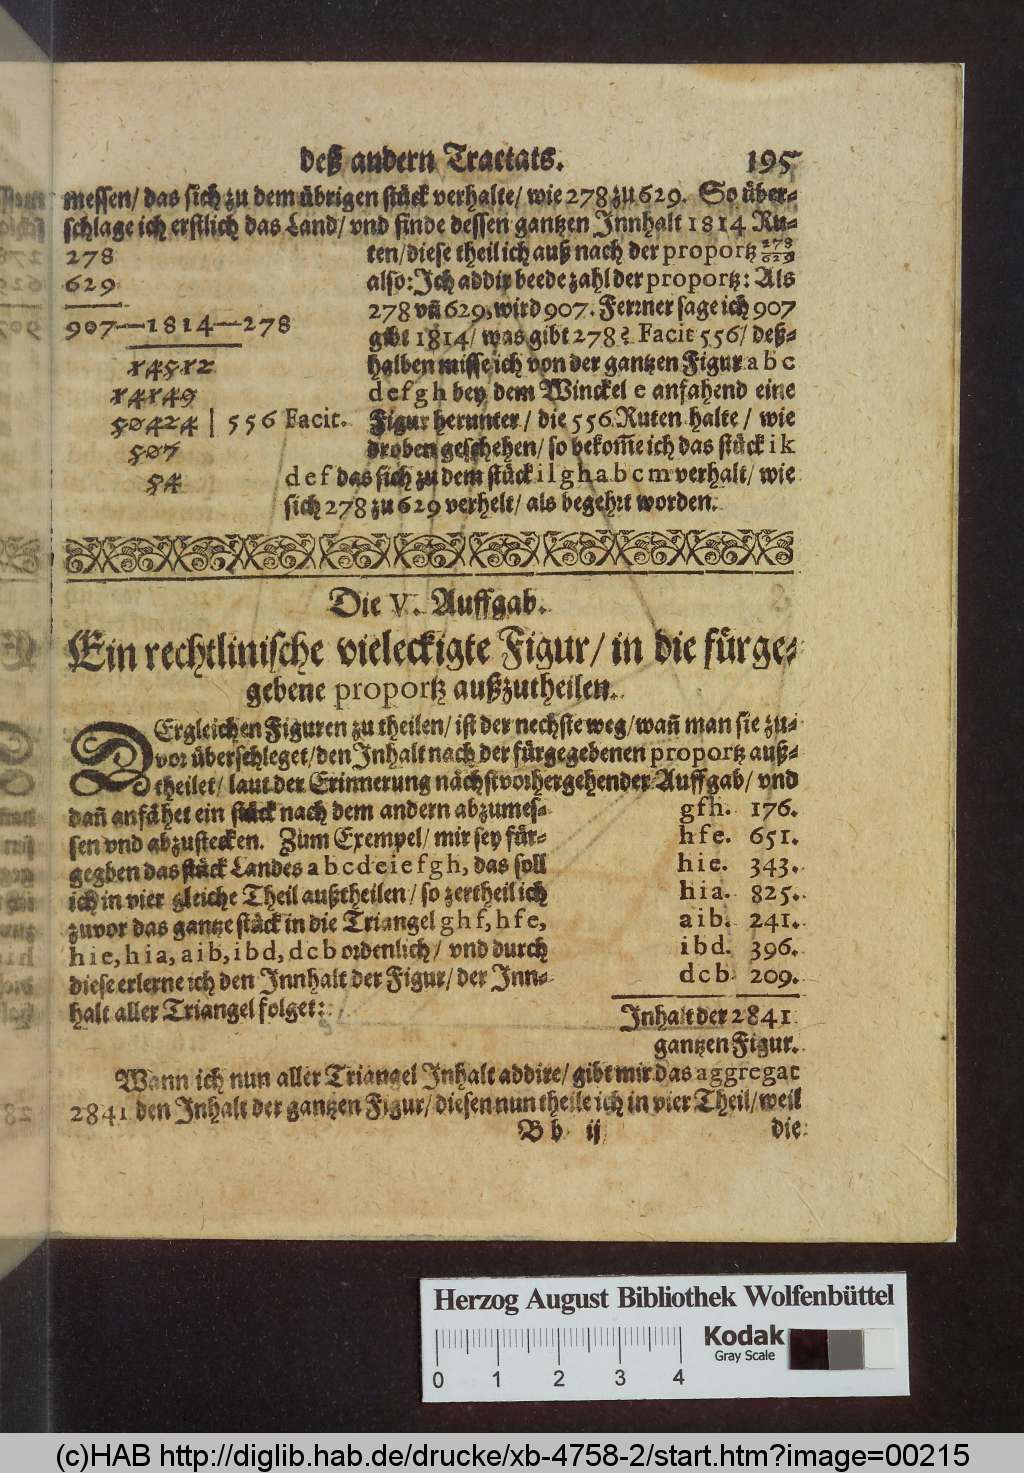 deß andern Tractats. 195
messen/ das sich zu dem übrigen stück verhalte/ wie 278 zu 629. So über-
schlage ich erstlich das Land/ vnd finde dessen gantzen Innhalt 1814 Ru-
278
629
907—1814—278
14512
14149
50424 | 556 Facit.
507
54
ten/ diese theil ich auß nach der proportz 278/629
also: Ich addir beede zahl der proportz: Als
278 vñ 629, wird 907. Ferrner sage ich 907
gibt 1814/ was gibt 278? Facit 556/ deß-
halben misse ich von der gantzen Figur a b c
d e f g h bey dem Winckel e anfahend eine
Figur herunter/ die 556 Ruten halte/ wie
droben geschehen/ so bekom̃e ich das stück i k
d e f das sich zu dem stück i l g h a b c m verhalt/ wie
sich 278 zu 629 verhelt/ als begehrt worden.
Die V. Auffgab.
Ein rechtlinische vieleckigte Figur/ in die fürge-
gebene proportz außzutheilen.
DErgleichen Figuren zu theilen/ ist der nechste weg/ wañ man sie zu-
vor überschleget/ den Inhalt nach der fürgegebenen proportz auß-
theilet/ laut der Erinnerung nächstvorhergehender Auffgab/ vnd
dañ anfähet ein stück nach dem andern abzumes-
sen vnd abzustecken. Zum Exempel/ mir sey für-
gegben das stück Landes a b c d e i e f g h, das soll
ich in vier gleiche Theil außtheilen/ so zertheil ich
zuvor das gantze stück in die Triangel g h f, h f e,
h i e, h i a, a i b, i b d, d c b ordenlich/ vnd durch
diese erlerne ich den Innhalt der Figur/ der Inn-
halt aller Triangel folget:
gfh. 176.
hfe. 651.
hie. 343.
hia. 825.
aib. 241.
ibd. 396.
dcb 209.
Inhalt der 2841
gantzen Figur.
Wann ich nun aller Triangel Inhalt addire/ gibt mir das aggregat
2841 den Inhalt der gantzen Figur/ diesen nun theile ich in vier Theil/ weil
B b ij die
Herzog August Bibliothek Wolfenbüttel
Kodak
Gray Scale
0 1 2 3 4
(c)HAB http://diglib.hab.de/drucke/xb-4758-2/start.htm?image=00215